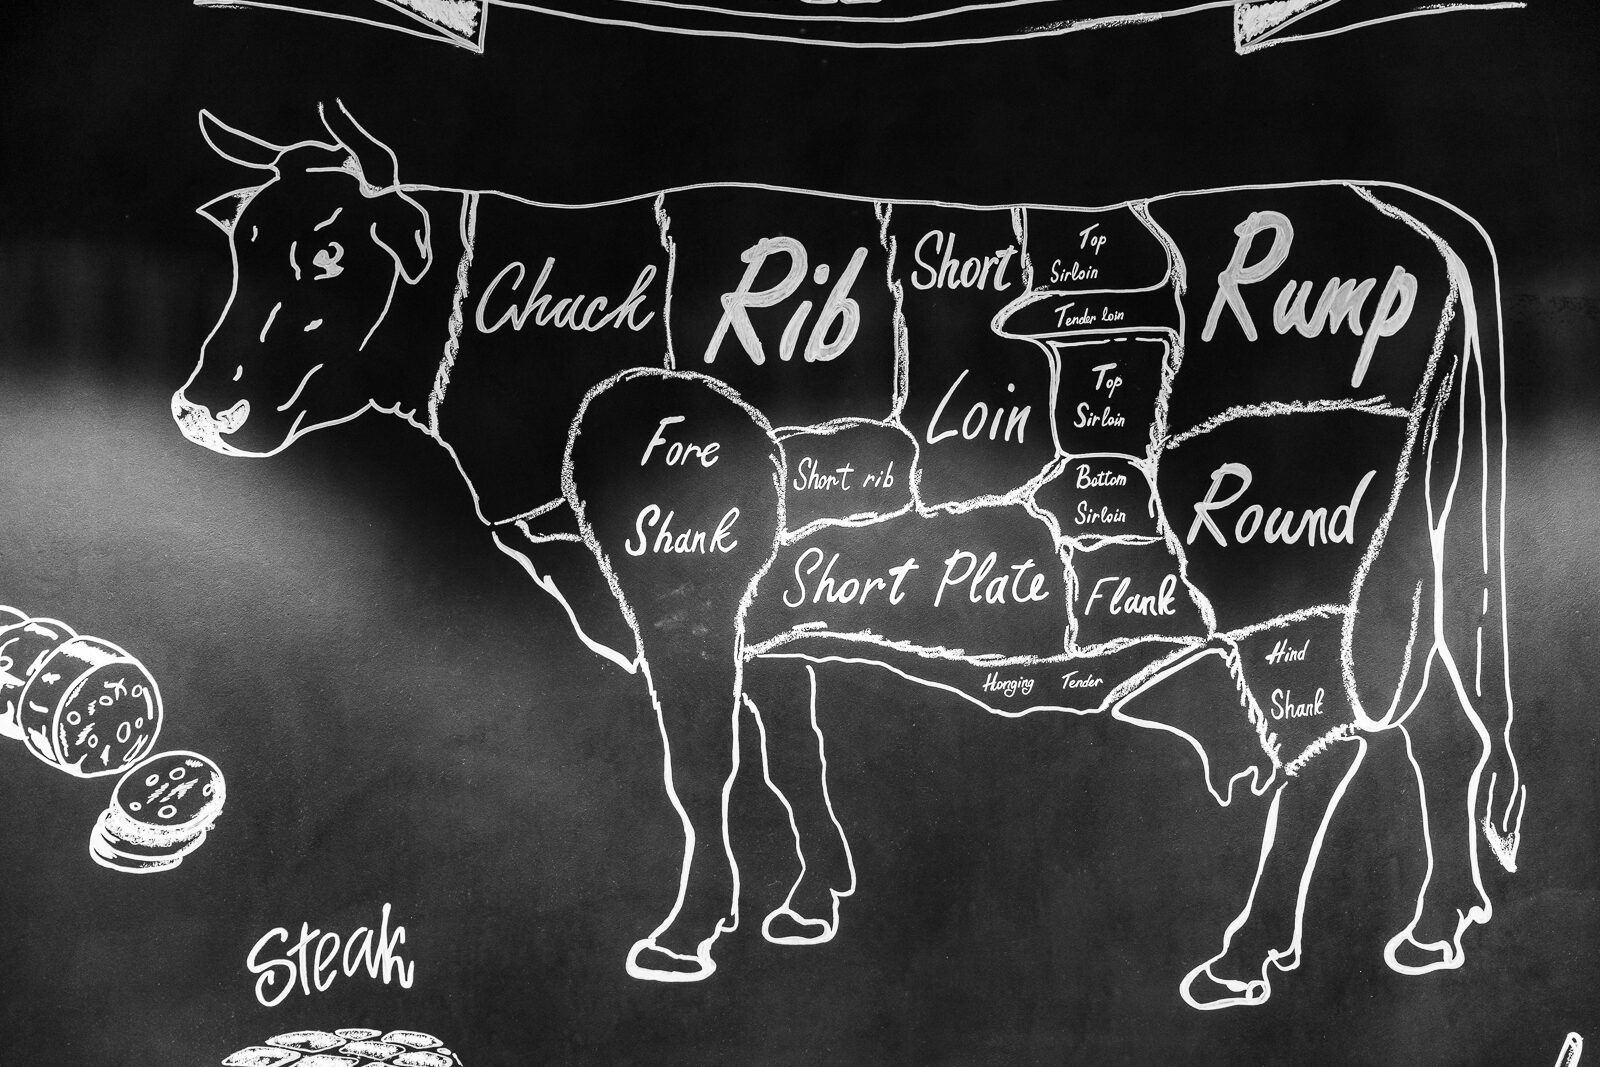 Chuck
Rib
Short
Loin
Top
Sirloin
Tender loin
Top
Sirloin
Bottom
Sirloin
Rump
Round
Fore
Shank
Short rib
Short Plate
Flank
Hind
Shank
Hanging Tender
Steak